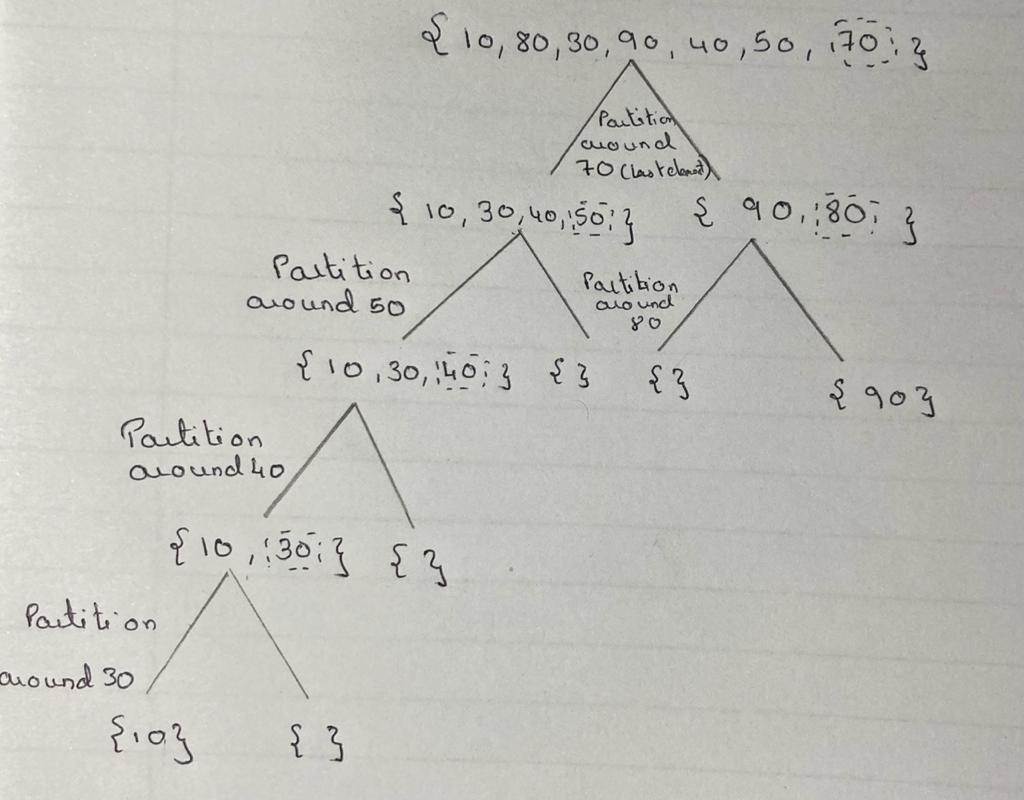 { 10, 80, 30, 90, 40, 50, 70 }
Partition
around
70 (Last element)
{ 10, 30, 40, 50 } { 90, 80 }
Partition
around 50
Partition
around
80
{ 10, 30, 40 } { } { } { 90 }
Partition
around 40
{ 10, 30 } { }
Partition
around 30
{10} { }